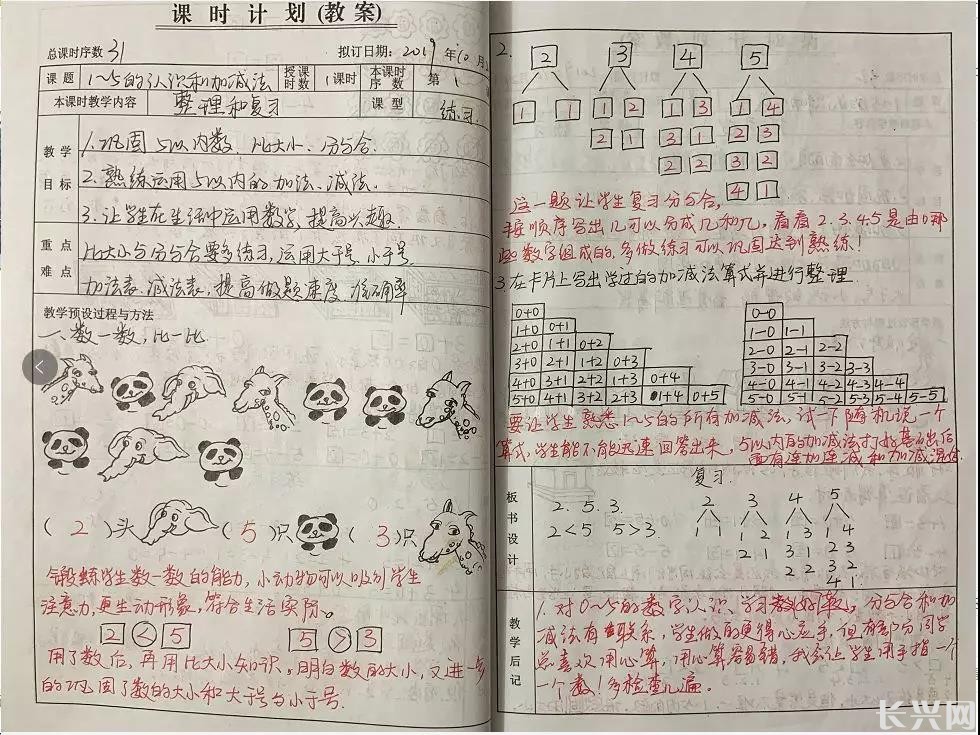 课时计划(教案)
总课时序数 31 拟订日期: 2019 年 10 月
课题 1~5的认识和加减法 授课时数 1课时 本课时序数 第 1
本课时教学内容 整理和复习 课型 练习.
教学目标
1. 巩固5以内数、比大小、分与合.
2. 熟练运用5以内的加法、减法.
3. 让学生在生活中运用数字, 提高兴趣
重点难点
比大小与分与合要多练习, 运用大于号、小于号
加法表、减法表, 提高做题速度、准确率
教学预设过程与方法
一、数一数, 比一比
( 2 )头 ( 5 )只 ( 3 )只
锻练学生数一数的能力, 小动物可以吸引学生
注意力, 更生动形象, 符合生活实际。
2 < 5 5 > 3
用了数后, 再用比大小知识, 明白数的大小, 又进一步
的巩固了数的大小和大于号与小于号.
2.
2 3 4 5
1 1 1 2 1 3 1 4
2 1 3 1 2 3
2 2 3 2
4 1
这一题让学生复习分与合,
按顺序写出几可以分成几和几, 看看2.3.4.5是由哪
些数字组成的, 多做练习可以巩固达到熟练!
3. 在卡片上写出学过的加减法算式并进行整理
0+0
1+0 0+1
2+0 1+1 0+2
3+0 2+1 1+2 0+3
4+0 3+1 2+2 1+3 0+4
5+0 4+1 3+2 2+3 1+4 0+5
0-0
1-0 1-1
2-0 2-1 2-2
3-0 3-1 3-2 3-3
4-0 4-1 4-2 4-3 4-4
5-0 5-1 5-2 5-3 5-4 5-5
要让学生熟悉1~5的所有加减法, 试一下随机说一个
算式, 学生能不能迅速回答出来, 5以内的加减法打好基础后
还有连加连减和加减混合
板书设计
复习
2. 5. 3.
2<5 5>3.
2 3 4 5
1 1 1 2 1 3 1 4
2 1 3 1 2 3
2 2 3 2
4 1
教学后记
1. 对0~5的数字认识、学习数好, 分与合和加
减法有联系, 学生做的更得心应手, 但有部分同学
总喜欢用心算, 用心算容易错, 我会让学生用手指一个
一个数! 多检查几遍。
长兴网